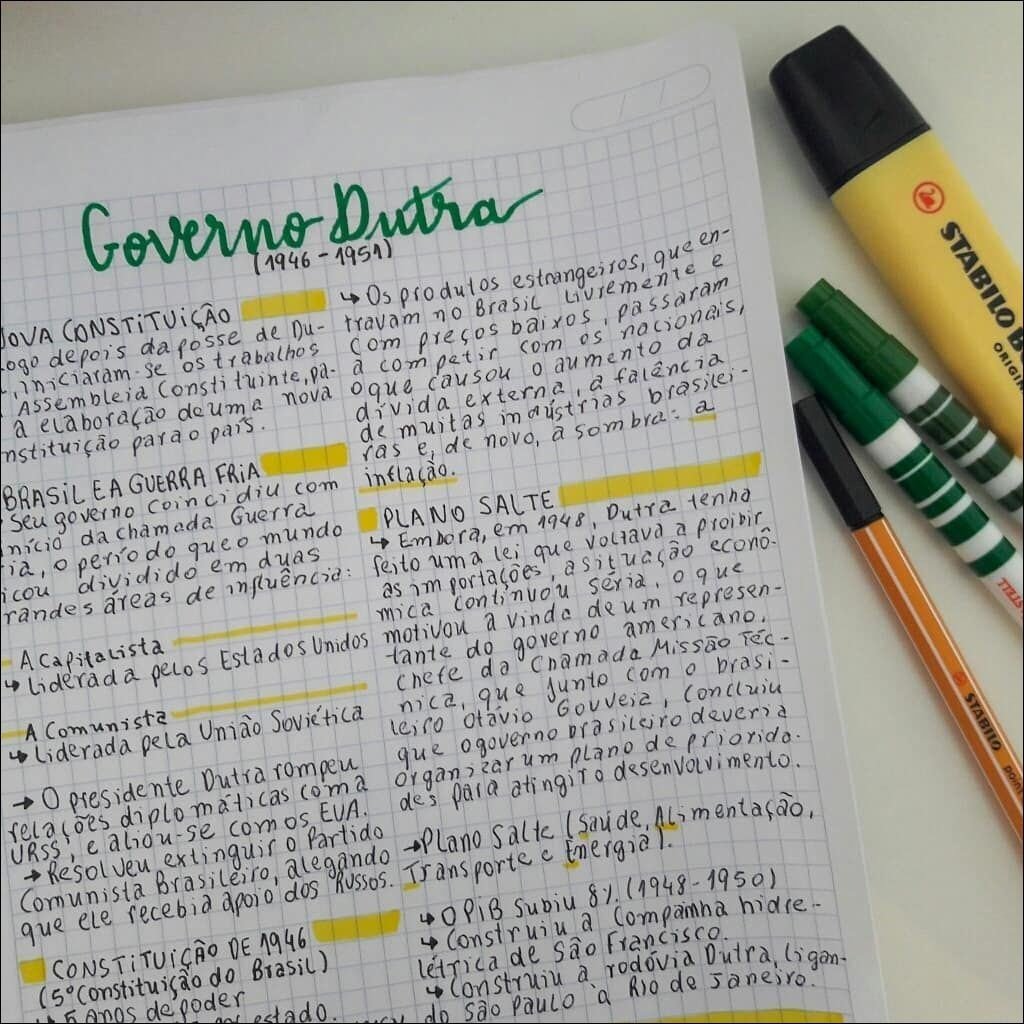 Governo Dutra
(1946 - 1951)
NOVA CONSTITUIÇÃO
Logo depois da posse de Du-
iniciaram-se os trabalhos
Assembleia Constituinte, pa-
a elaboração de uma nova
nstituição para o país.
BRASIL E A GUERRA FRIA
Seu governo coincidiu com
nício da chamada Guerra
ria, o período que o mundo
icou dividido em duas
randes áreas de influência:
A Capitalista
↳ Liderada pelos Estados Unidos
A Comunista
↳ Liderada pela União Soviética
→ O presidente Dutra rompeu
relações diplomáticas com a
URSS, e aliou-se com os EUA.
→ Resolveu extinguir o Partido
Comunista Brasileiro, alegando
que ele recebia apoio dos Russos.
CONSTITUIÇÃO DE 1946
(5º Constituição do Brasil)
↳ 5 anos de poder
estado.
↳ Os produtos estrangeiros, que en-
travam no Brasil livremente e
com preços baixos, passaram
a competir com os nacionais,
o que causou o aumento da
dívida externa, a falência
de muitas indústrias brasilei-
ras e, de novo, a sombra: a
inflação.
PLANO SALTE
↳ Embora, em 1948, Dutra tenha
feito uma lei que voltava a proibir
as importações, a situação econô-
mica continuou séria, o que
motivou a vinda de um represen-
tante do governo americano,
chefe da chamada Missão Téc-
nica, que junto com o brasi-
leiro Otávio Gouveia, concluiu
que o governo brasileiro deveria
organizar um plano de priorida-
des para atingir o desenvolvimento.
→ Plano Salte (Saúde, Alimentação,
Transporte e Energia).
↳ O PIB subiu 8% (1948-1950)
↳ Construiu a Companhia hidre-
létrica de São Francisco.
↳ Construiu a rodóvia Dutra, ligan-
do São Paulo à Rio de Janeiro.
STABILO BO
ORIGIN
STABILO
point